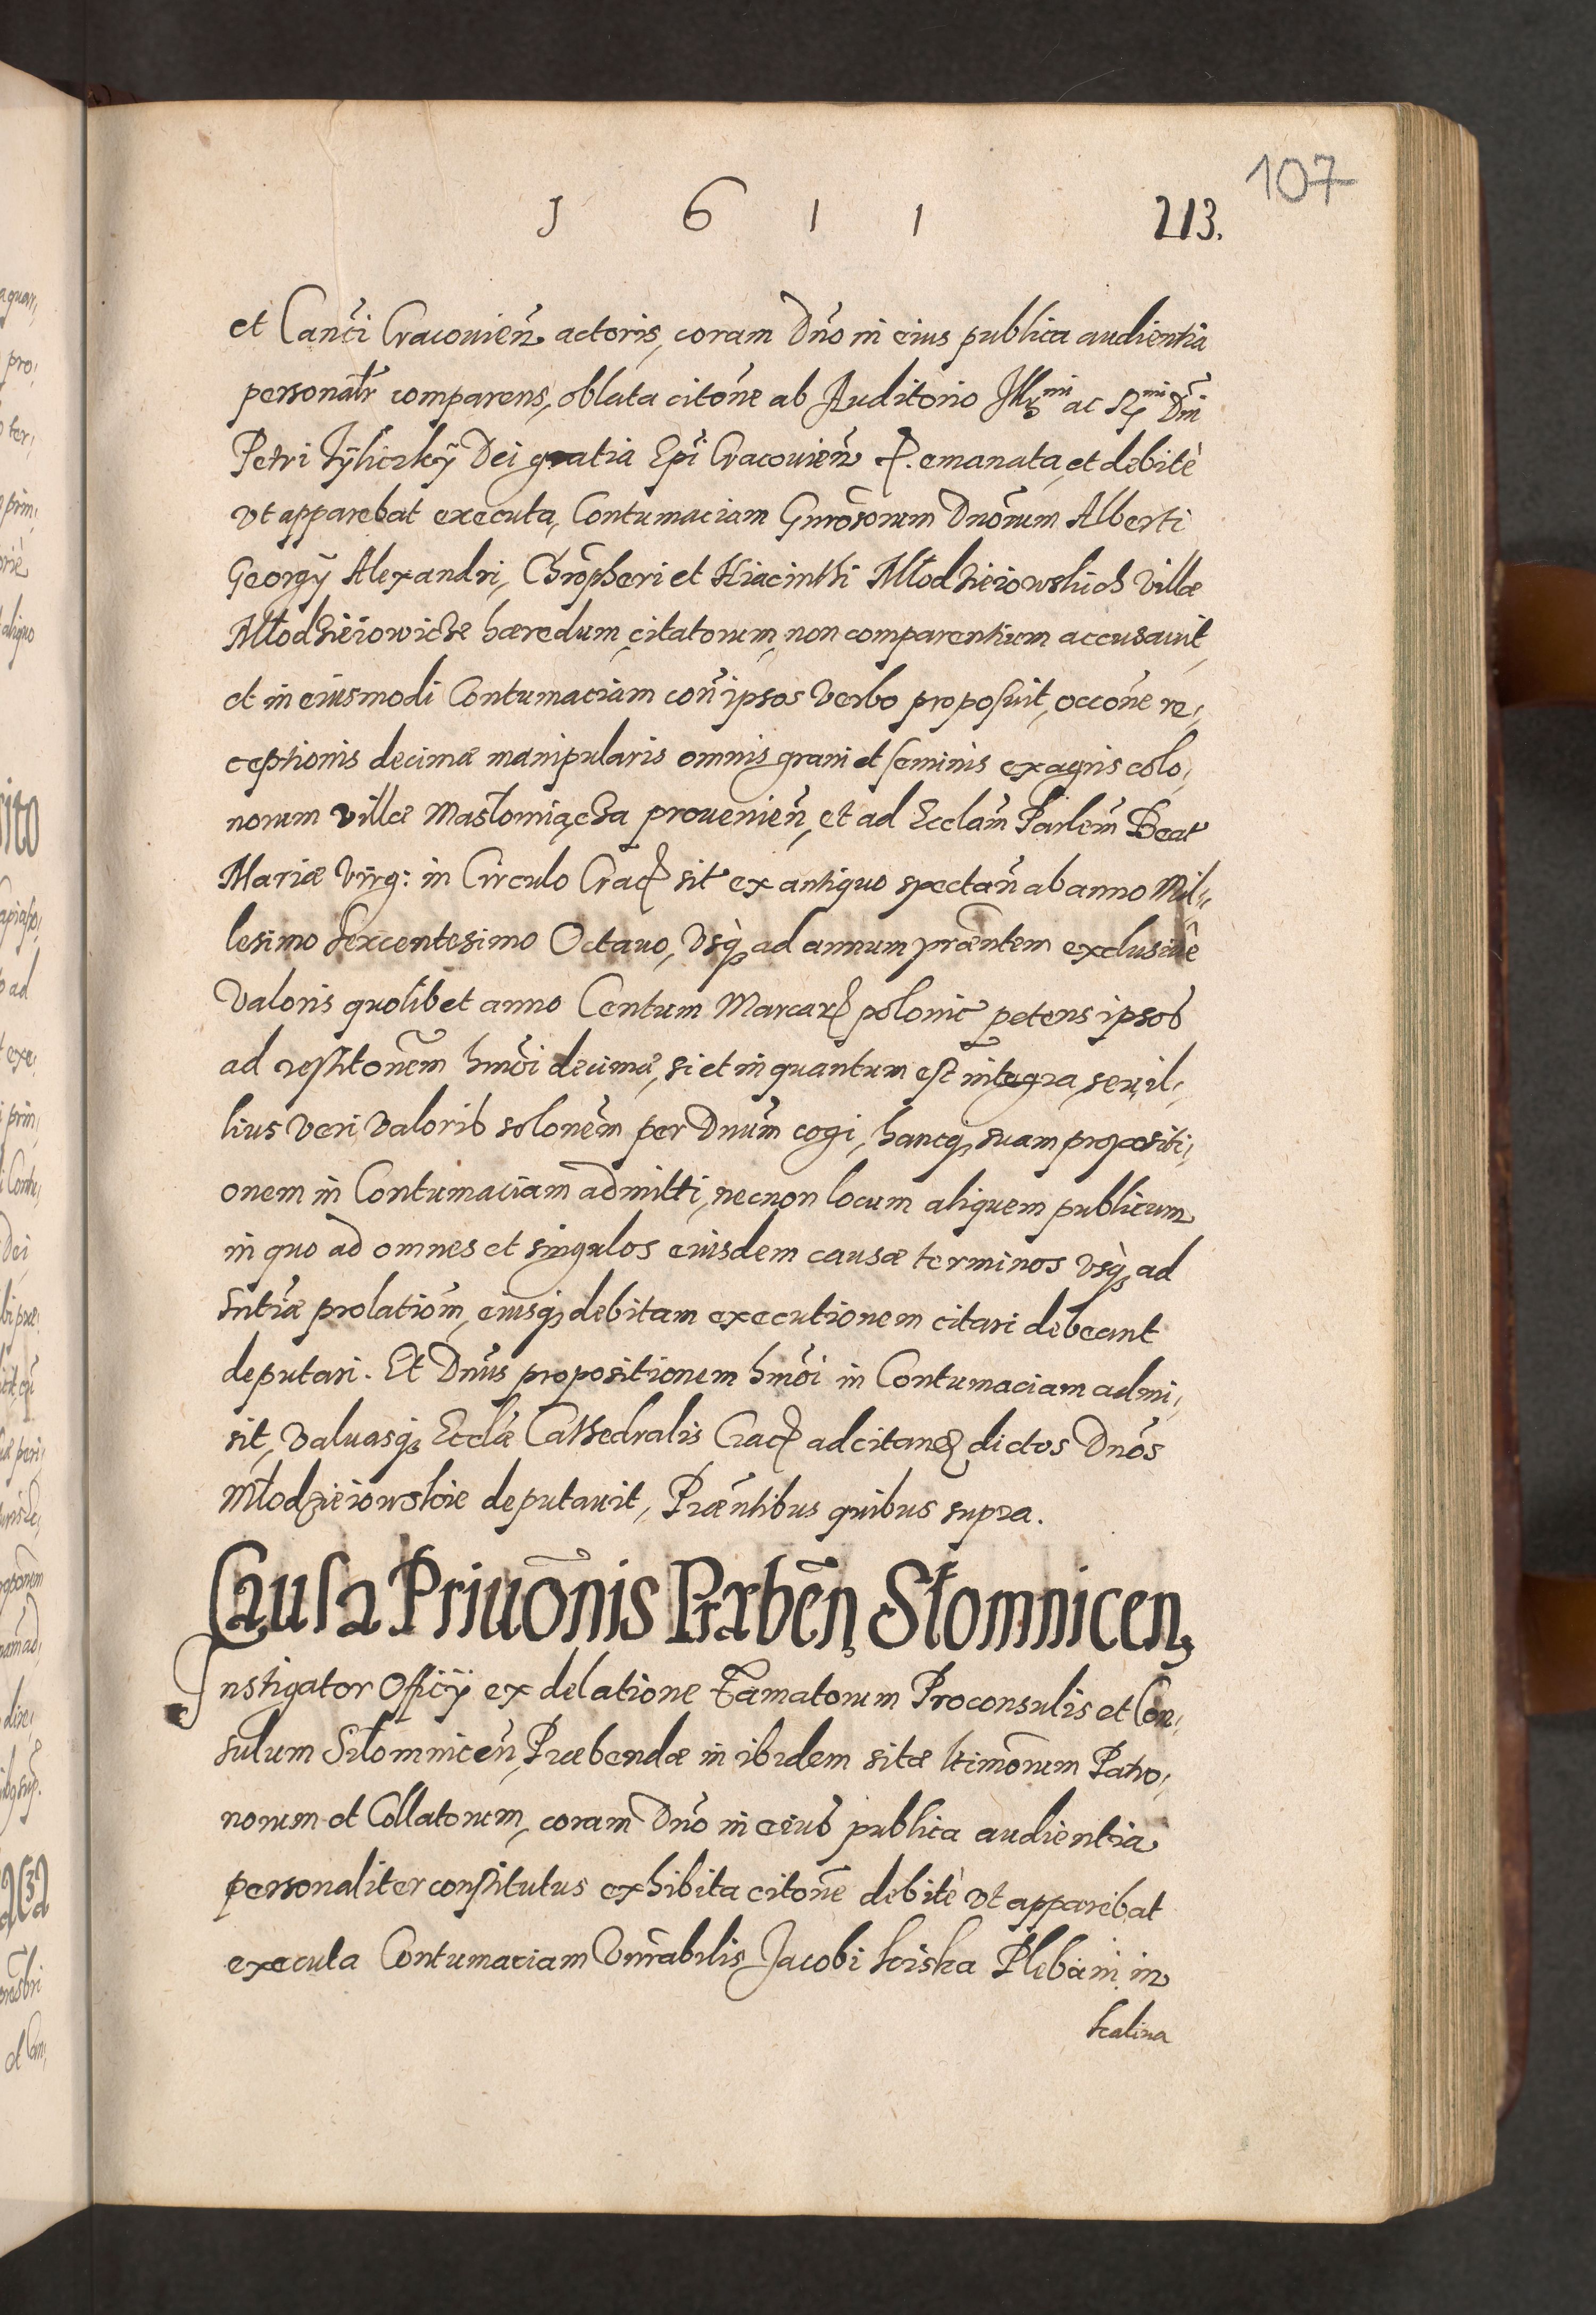 107
1 6 1 1 213.
et Canci Cracouien actoris, coram Dno in eius publica audientia
personalr comparens, oblata citone ab Auditorio Illmi ac Rmi Dni
Petri Tÿliczkÿ Dei gratia Epi Cracouien P. emanata, et debitè
vt apparebat executa, Contumaciam Gnrosorum Dnorum Alberti
Georgÿ Alexandri, Chropheri et Hiacinthi Młodzieiowskich villæ
Młodzieiowicze hæredum, citatorum, non comparentium accusauit,
et in eiusmodi Contumaciam con ipsos verbo proposuit, occone re,
ceptionis decimæ manipularis omnis grani et seminis ex agris colo,
norum villæ Masłomiącza prouenien, et ad Ecclam Parlem Beat
Mariæ Virg: in Circulo Crac sit ex antiquo spectan ab anno Mil,,
lesimo Sexcentesimo Octauo, vsq ad annum præntem exclusiuè
valoris quolibet anno Centum Marcar polonic petens ipsos
ad restitonem hmoi decimæ, si et in quantum est integra, seu il,
lius veri valoris solonem per Dnum cogi, hancq suam propositi,
onem in Contumaciam admitti, necnon locum aliquem publicum
in quo ad omnes et singulos eiusdem causæ terminos vsq ad
sntiæ prolationem, eiusq debitam executionem citari debeant
deputari. Et Dnus propositionem hmoi in Contumaciam admi,
sit, valuasq Ecclæ Cathedralis Crac ad citand dictos Dnos
Młodzieiowskie deputauit, Præntibus quibus supra.
Causa Priuonis Præben Słomnicen,
Instigator Officÿ ex delatione Famatorum Proconsulis et Con,
sulum Słomnicen, Præbendæ in ibidem sitæ ltimorum Patro,
norum et Collatorum, coram Dno in eius publica audientia
personaliter constitutus exhibita citone debitè vt apparebat
executa Contumaciam Vnrabilis Jacobi Kiska Plebani in
Kalina